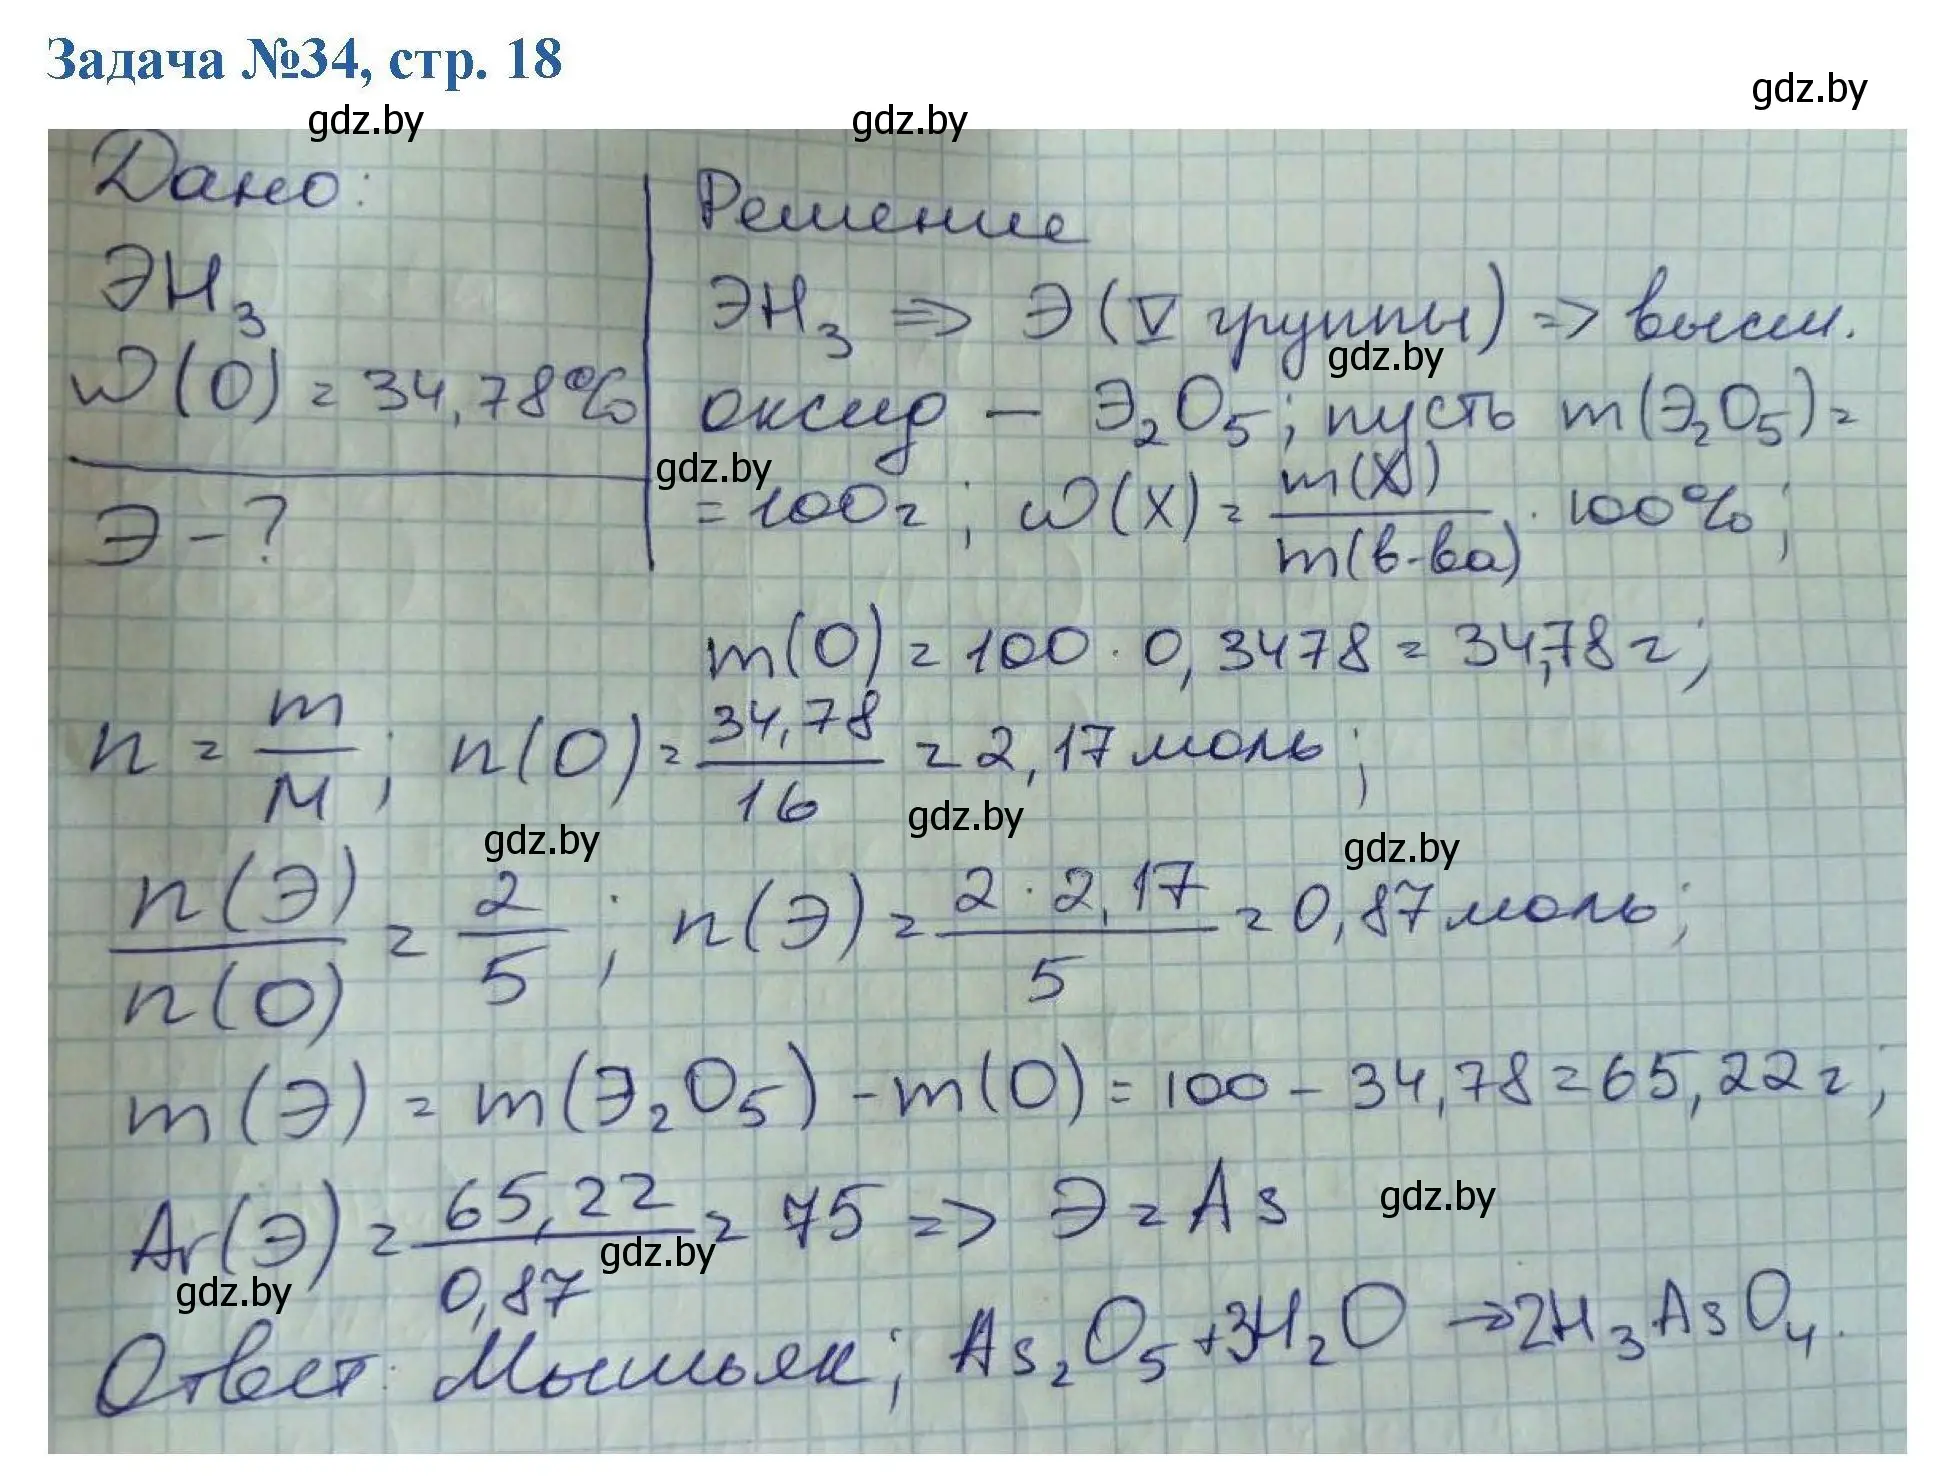 Задача №34, стр. 18
gdz.by
gdz.by gdz.by
Дано:
ЭH₃
W(O) = 34,78%
Э - ?
Решение
ЭH₃ => Э (V группы) => высш.
gdz.by
оксид — Э₂O₅; пусть m(Э₂O₅) =
gdz.by
= 100г; W(X) = m(X)/m(в-ва) · 100%;
m(O) = 100 · 0,3478 = 34,78 г;
n = m/M; n(O) = 34,78/16 = 2,17 моль;
gdz.by gdz.by gdz.by
n(Э)/n(O) = 2/5; n(Э) = 2 · 2,17/5 = 0,87 моль;
m(Э) = m(Э₂O₅) - m(O) = 100 - 34,78 = 65,22 г;
Ar(Э) = 65,22/0,87 = 75 => Э = As
gdz.by gdz.by gdz.by
Ответ: Мышьяк; As₂O₅ + 3H₂O → 2H₃AsO₄.